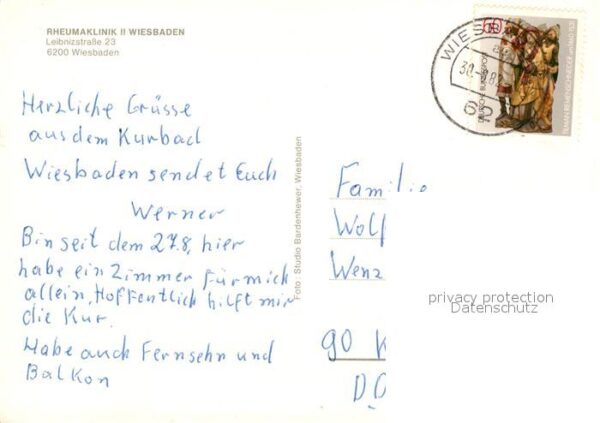 RHEUMAKLINIK II WIESBADEN
Leibnizstraße 23
6200 Wiesbaden
Herzliche Grüsse
aus dem Kurbad
Wiesbaden sendet Euch
Werner
Bin seit dem 27.8, hier
habe ein Zimmer für mich
allein, Hoffentlich hilft mir
die Kur.
Habe auch Fernsehn und
Balkon
Foto Studio Bardenhewer, Wiesbaden
WIESB
30
62
60
DEUTSCHE BUNDESPOST
TILMAN RIEMENSCHNEIDER
Familie
Wolf
Wenz
privacy protection
Datenschutz
90 K
DO